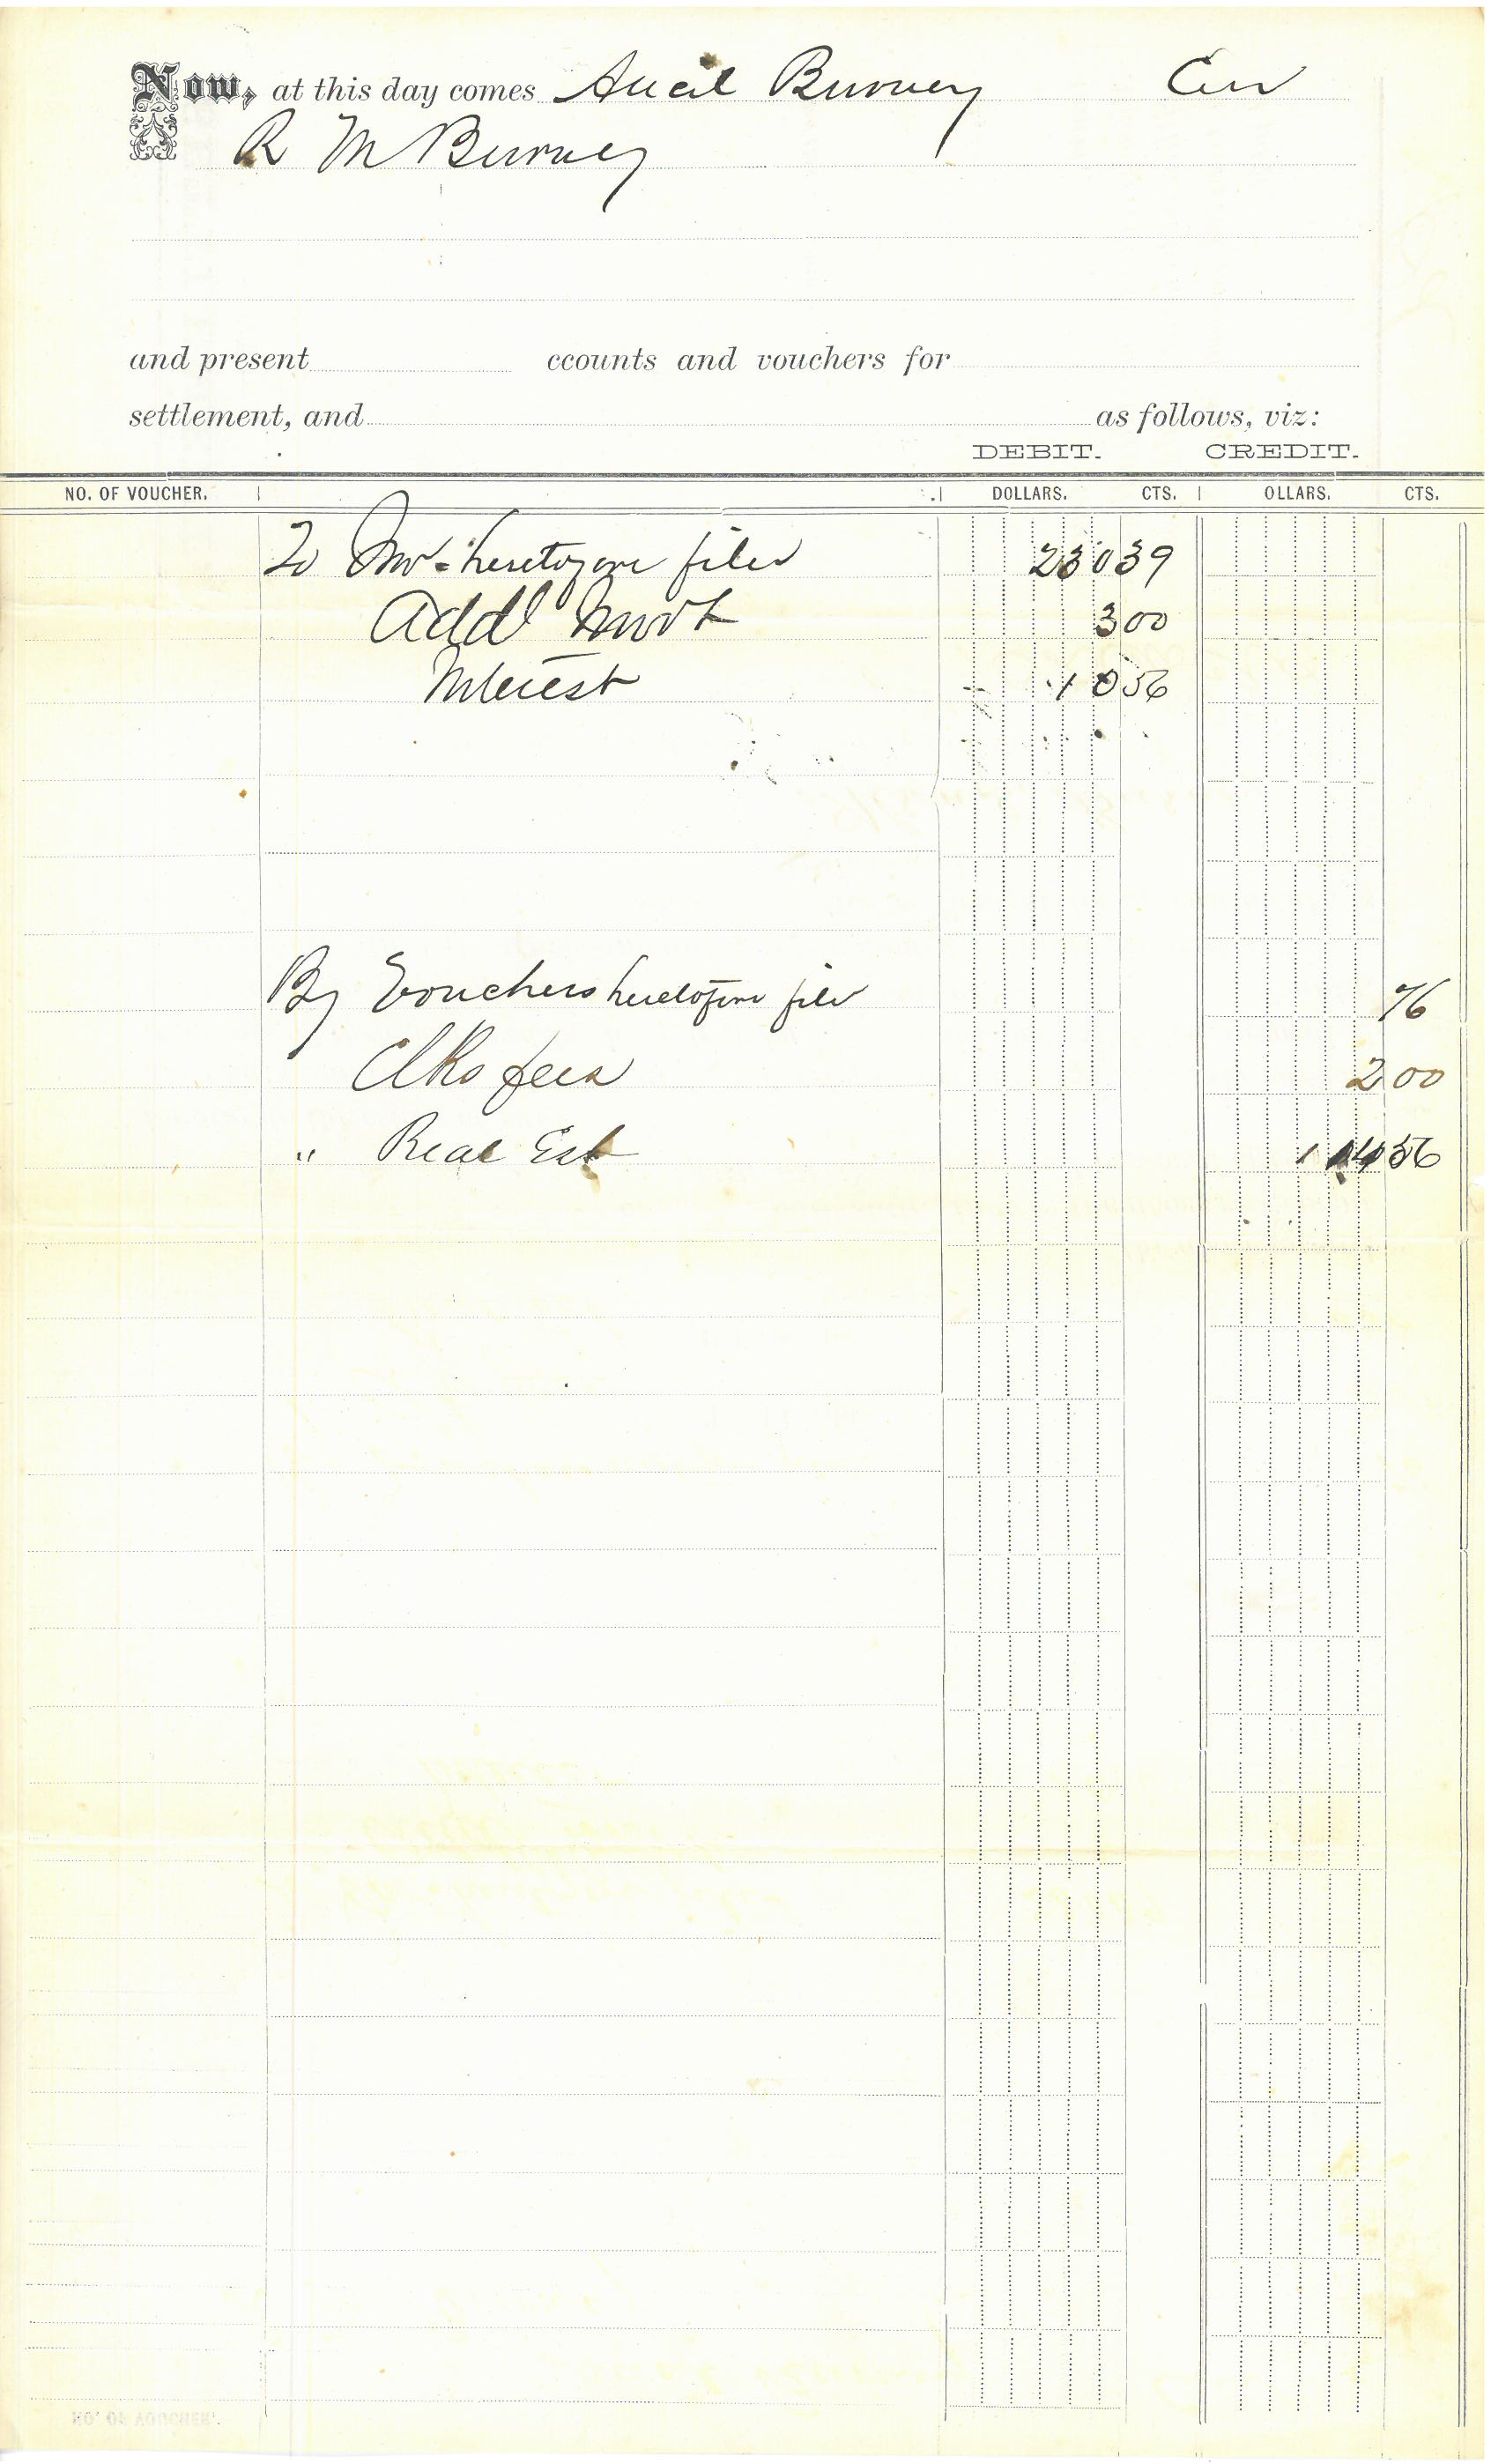 Now, at this day comes Ancil Burney Cur
R M Burney
and present ccounts and vouchers for
settlement, and as follows, viz:
DEBIT. CREDIT.
NO. OF VOUCHER. DOLLARS. CTS. OLLARS. CTS.
To Inv heretofore filed 230 39
Addl Invt 3 00
Interest 10 56
By Vouchers heretofore filed 76
Clks fees 2 00
" Real Est 56
NO. OF VOUCHER.